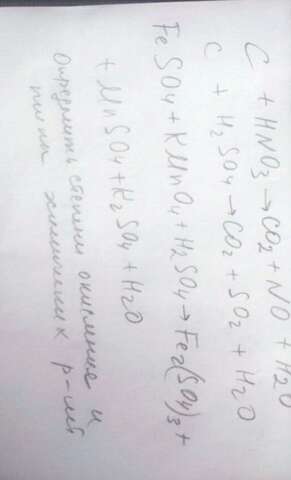 C + HNO3→CO2 + NO + H2O
C + H2SO4→CO2 + SO2 + H2O
FeSO4 + KMnO4 + H2SO4→Fe2(SO4)3 +
+ MnSO4 + K2SO4 + H2O
Определить степени окисления и
типы химических р-ий